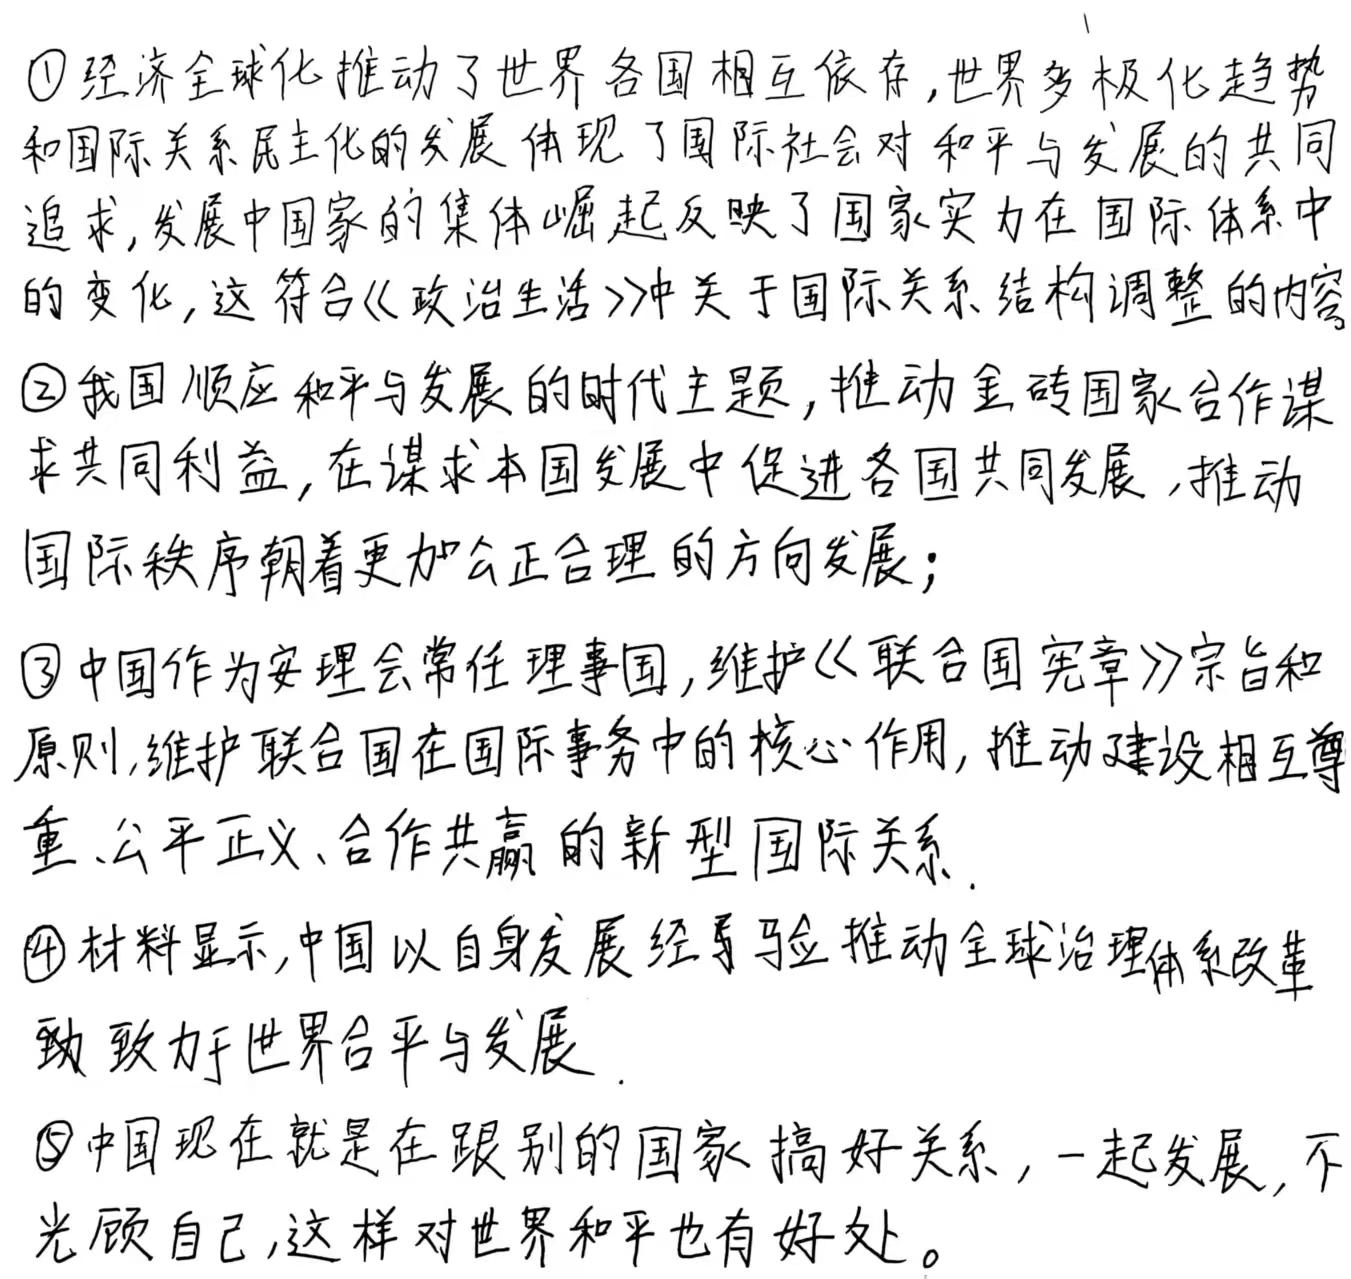 ①经济全球化推动了世界各国相互依存,世界多极化趋势
和国际关系民主化的发展体现了国际社会对和平与发展的共同
追求,发展中国家的集体崛起反映了国家实力在国际体系中
的变化,这符合《政治生活》中关于国际关系结构调整的内容
②我国顺应和平与发展的时代主题,推动金砖国家合作谋
求共同利益,在谋求本国发展中促进各国共同发展,推动
国际秩序朝着更加公正合理的方向发展;
③中国作为安理会常任理事国,维护《联合国宪章》宗旨和
原则,维护联合国在国际事务中的核心作用,推动建设相互尊
重、公平正义、合作共赢的新型国际关系.
④材料显示,中国以自身发展经验推动全球治理体系改革
致力于世界合平与发展.
⑤中国现在就是在跟别的国家搞好关系,一起发展,不
光顾自己,这样对世界和平也有好处。